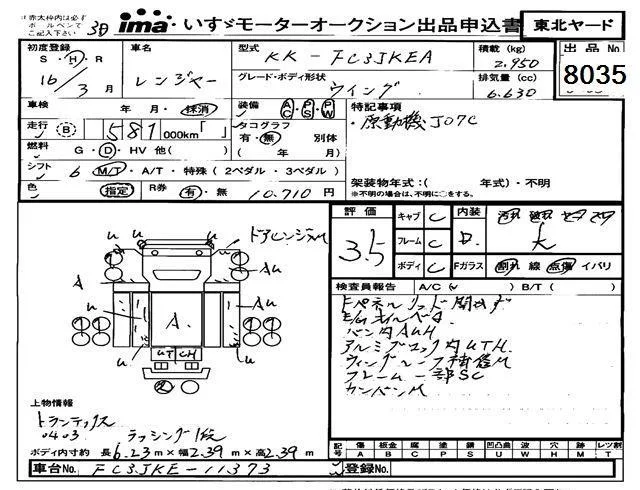 ima いすゞモーターオークション出品申込書 東北ヤード
初度登録 車名 型式 KK-FC3JKEA 積載(kg) 2,950 出品No
S・H・R 16/3月 レンジャー グレード・ボディ形状 ウイング 排気量(cc) 6.630 8035
車検 年 月・抹消 装備 AC PS PW 特記事項
走行 B 581 000km「 」 タコグラフ 有・無 ・原動機J07C
燃料 G・D・HV 他( ) ( 年 月)
シフト 6 M/T・A/T・特殊(2ペダル・3ペダル) 架装物年式:( 年式)・不明
※不明の場合は、不明に○をする。
色 指定 R券 有・無 10.710円
評価 3.5 キャブ C 内装 D.
フレーム C
ボディ C Fガラス 割れ 線 点傷 イバリ
検査員報告 A/C( ) B/T( )
ドアヒンジM
u u u u
Au
Au
A
A.
u u
UT CH
ドパネルリッド開かず
E/Gオイルベタ
バン内AUH
アルミブロック内UTH.
ウィングルーフ補修M
フレーム一部SC
カンバンM
上物情報
トランテックス
0403 ラッシング1段
ボディ内寸約 長6.23m×幅2.39m×高2.39m
記号 傷 板金 腐 塗 錆 凹凸曲 波 穴 跡 レツ割
A B C P S U W H M T
車台No. FC3JKE-11373 登録No.